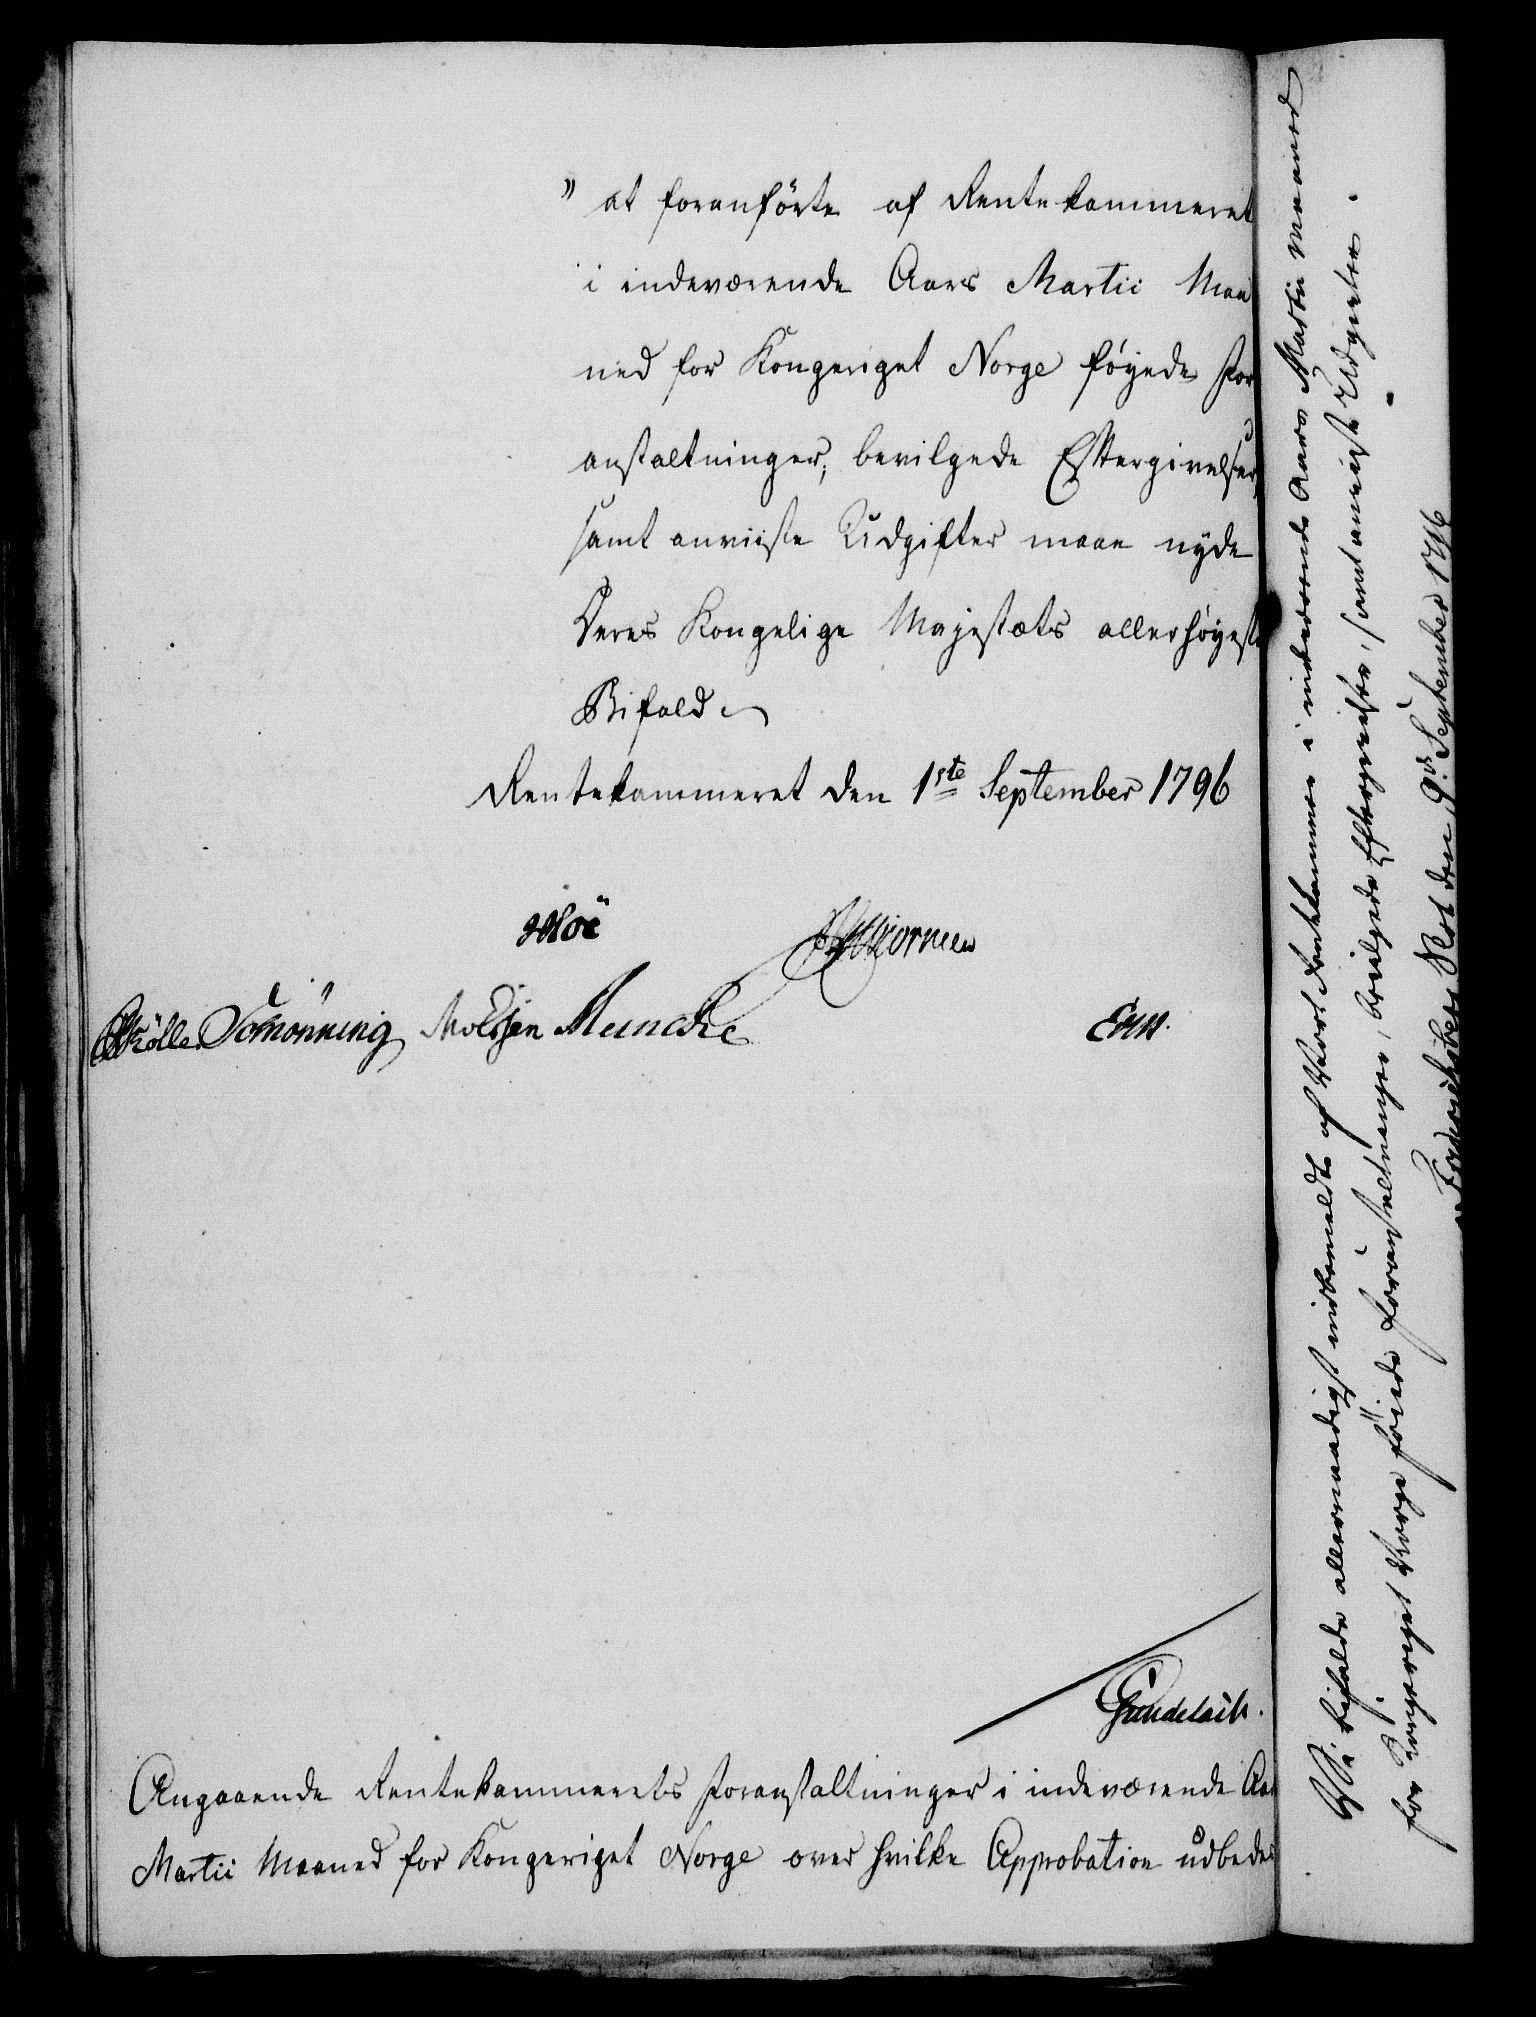 " at foranførte af Rentekammeret
i indeværende Aars Martii Maa
ned for Kongeriget Norge føyede For
anstaltninger, bevilgede Eftergivelser,
samt anviiste Udgifter maae nyde
Deres Kongelige Majestæts allerhøyeste
Bifald.
Rentekammeret den 1ste September 1796
Hoë
Schønning Muncke
Gündelach.
Angaaende Rentekammerets Foranstaltninger i indeværende Aars
Martii Maaned for Kongeriget Norge over hvilke Approbation udbedes
Vi bifalde allernaadigst indbemeldte af Vort Rentekammer i indeværende Aars Martii Maaned
for Kongeriget Norge föiede Foranstaltninger, bevilgede Eftergivelser, samt anviiste Udgivter.
Friderichsberg Slot den 9de September 1796